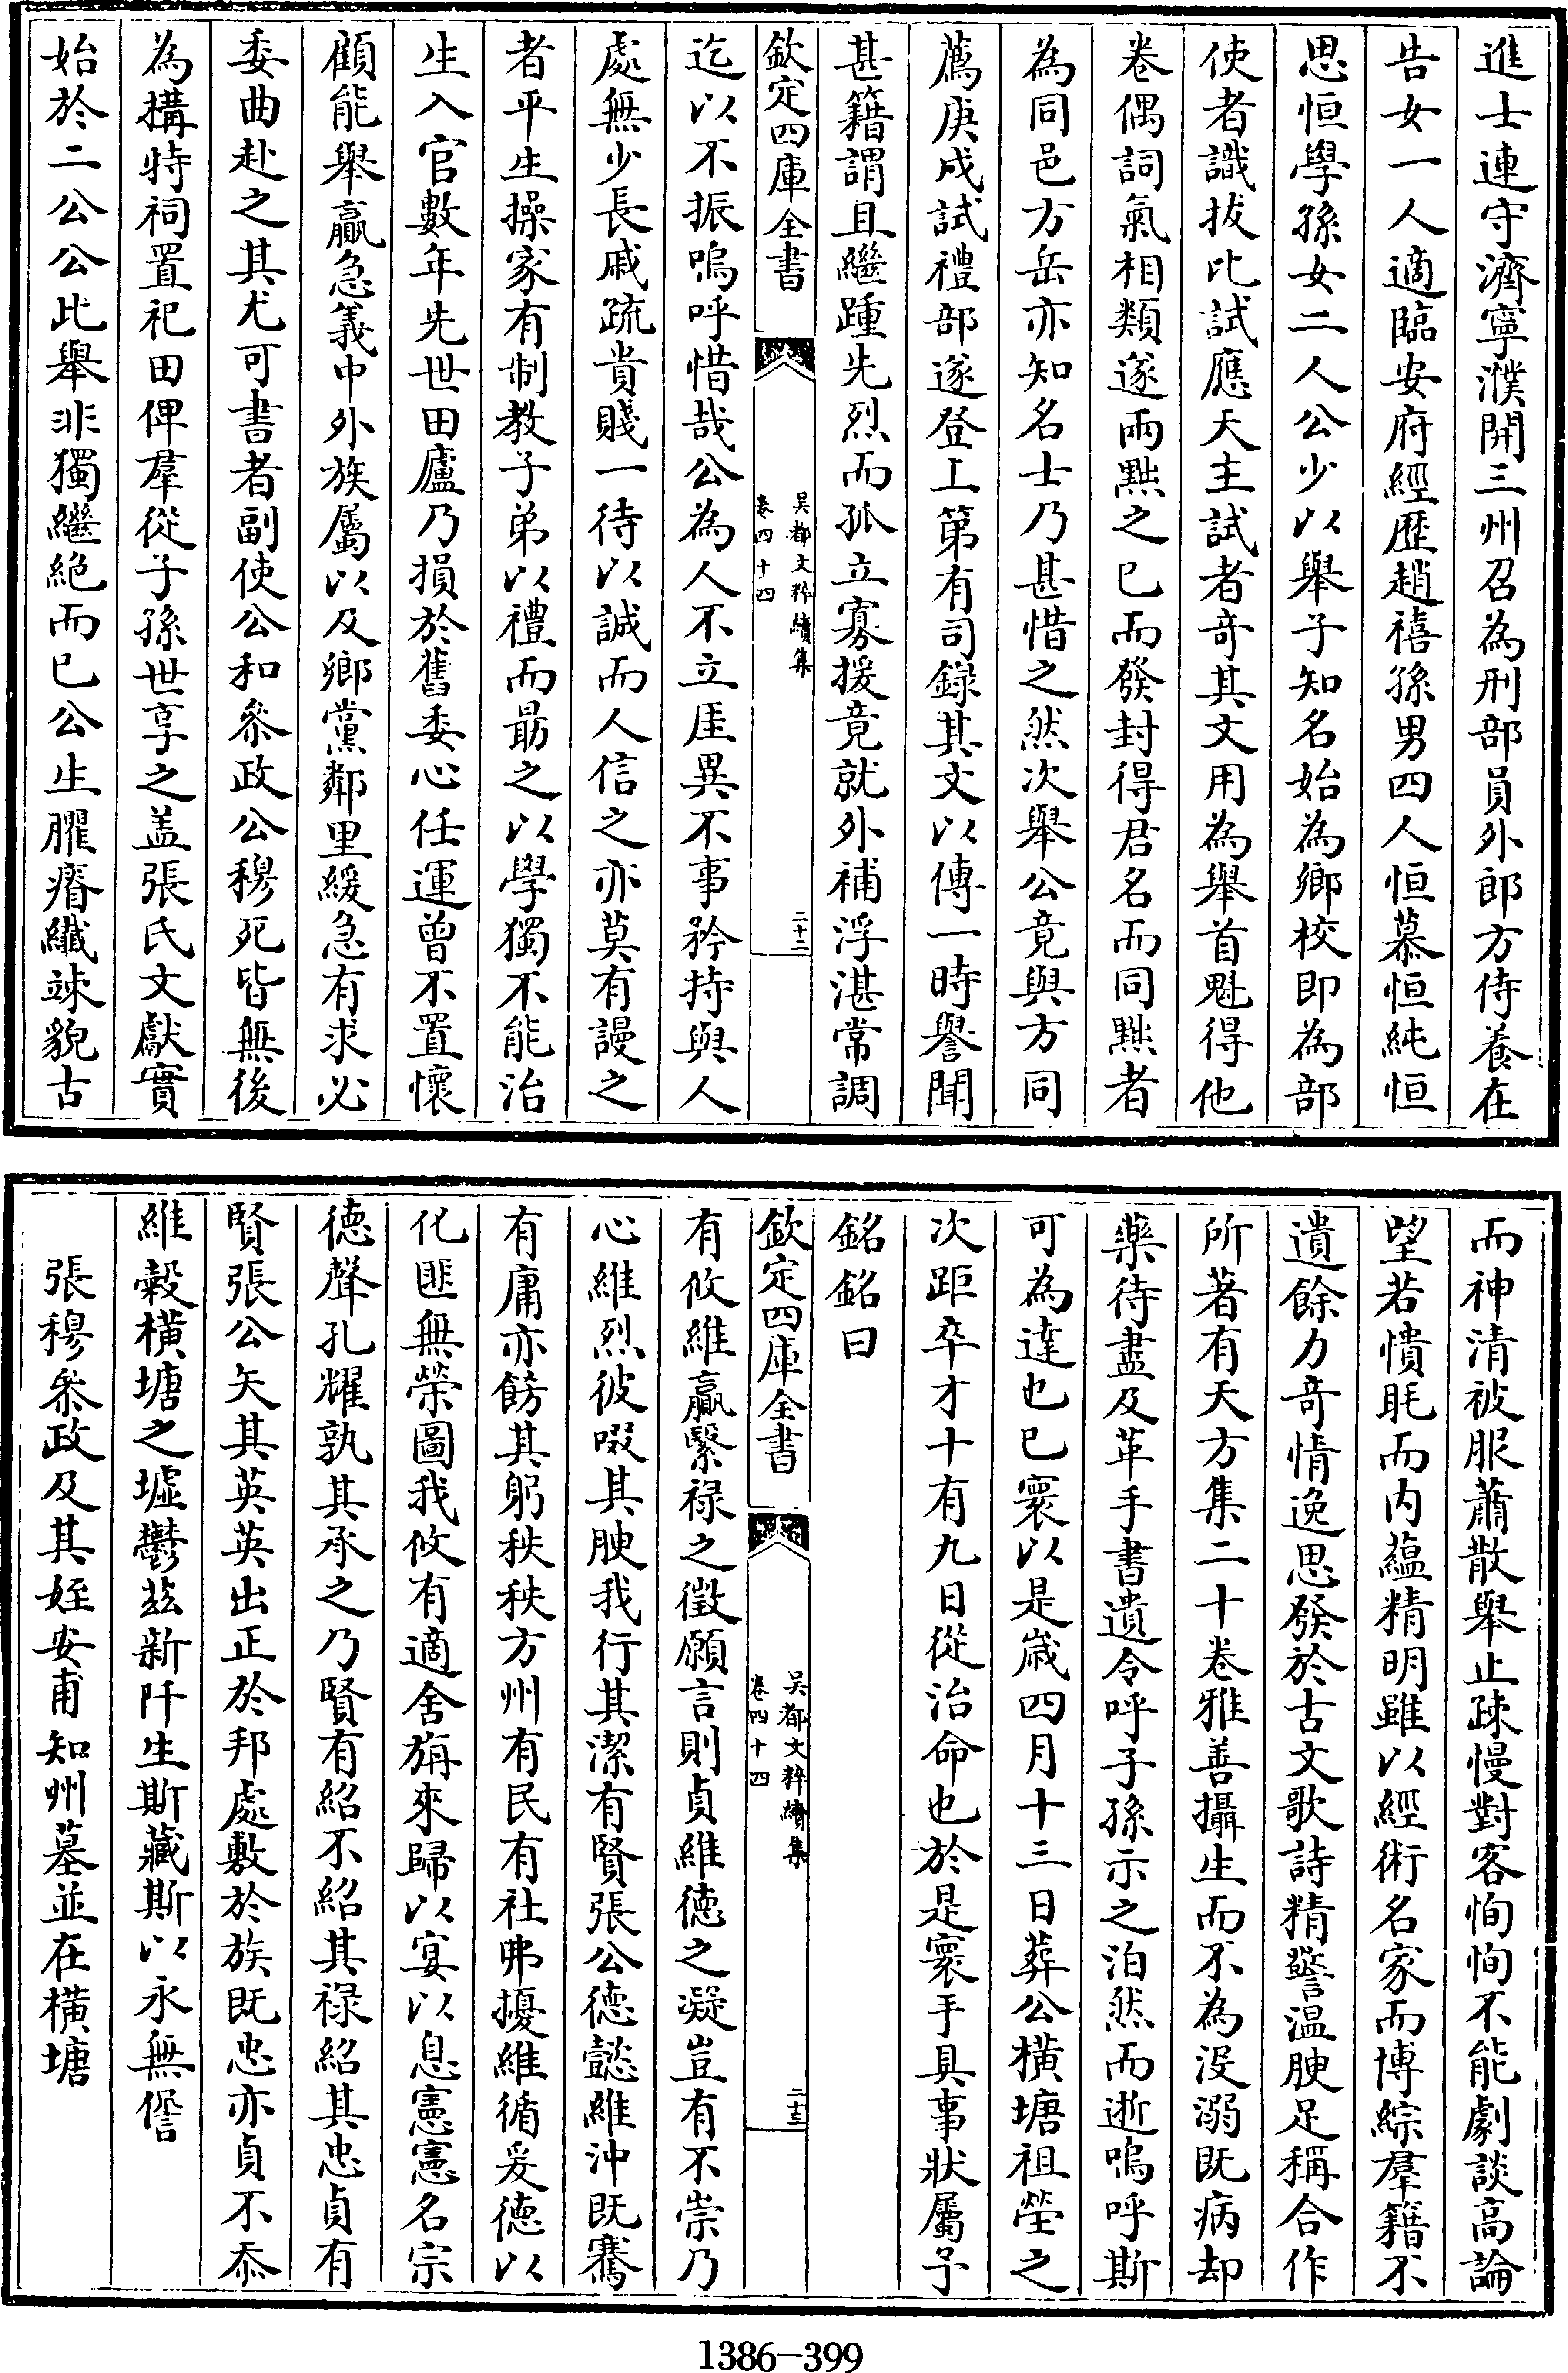 進士連守濟寧濮開三州召為刑部員外郎方侍養在
告女一人適臨安府經歷趙禧孫男四人恒慕恒純恒
思恒學孫女二人公少以舉子知名始為鄉校即為部
使者識拔比試應天主試者奇其文用為舉首魁得他
卷偶詞氣相類遂兩黜之已而發封得君名而同黜者
為同邑方岳亦知名士乃甚惜之然次舉公竟與方同
薦庚戍試禮部遂登上第有司錄其文以傳一時譽聞
甚籍謂且繼踵先烈而孤立寡援竟就外補浮湛常調
欽定四庫全書
吳都文粹續集
卷四十四
二十二
迄以不振嗚呼惜哉公為人不立厓異不事矜持與人
處無少長戚疏貴賤一待以誠而人信之亦莫有謾之
者平生操家有制教子弟以禮而勗之以學獨不能治
生入官數年先世田廬乃損於舊委心任運曾不置懷
顧能舉贏急義中外族屬以及鄉黨鄰里緩急有求必
委曲赴之其尤可書者副使公和叅政公穆死皆無後
為搆特祠置祀田俾羣從子孫世享之盖張氏文獻實
始於二公公此舉非獨繼絕而已公生臞瘠纖竦貌古
而神清被服蕭散舉止疎慢對客恂恂不能劇談高論
望若憒眊而内蘊精明雖以經術名家而博綜羣籍不
遺餘力奇情逸思發於古文歌詩精警温腴足稱合作
所著有天方集二十卷雅善攝生而不為沒溺既病却
藥待盡及革手書遺令呼子孫示之泊然而逝嗚呼斯
可為達也已寰以是歲四月十三日葬公橫塘祖塋之
次距卒才十有九日從治命也於是寰手具事狀屬予
銘銘曰
欽定四庫全書
吳都文粹續集
卷四十四
二十三
有攸維贏繄祿之徵願言則貞維德之凝豈有不崇乃
心維烈彼啜其腴我行其潔有賢張公德懿維沖既騫
有庸亦飭其躬秩秩方州有民有社弗擾維循爰德以
化匪無榮圖我攸有適舍旃來歸以宴以息憲憲名宗
德聲孔燿孰其承之乃賢有紹不紹其祿紹其忠貞有
賢張公矢其英英出正於邦處敷於族既忠亦貞不忝
維穀橫塘之墟鬱兹新阡生斯藏斯以永無諐
張穆叅政及其姪安甫知州墓並在橫塘
1386-399